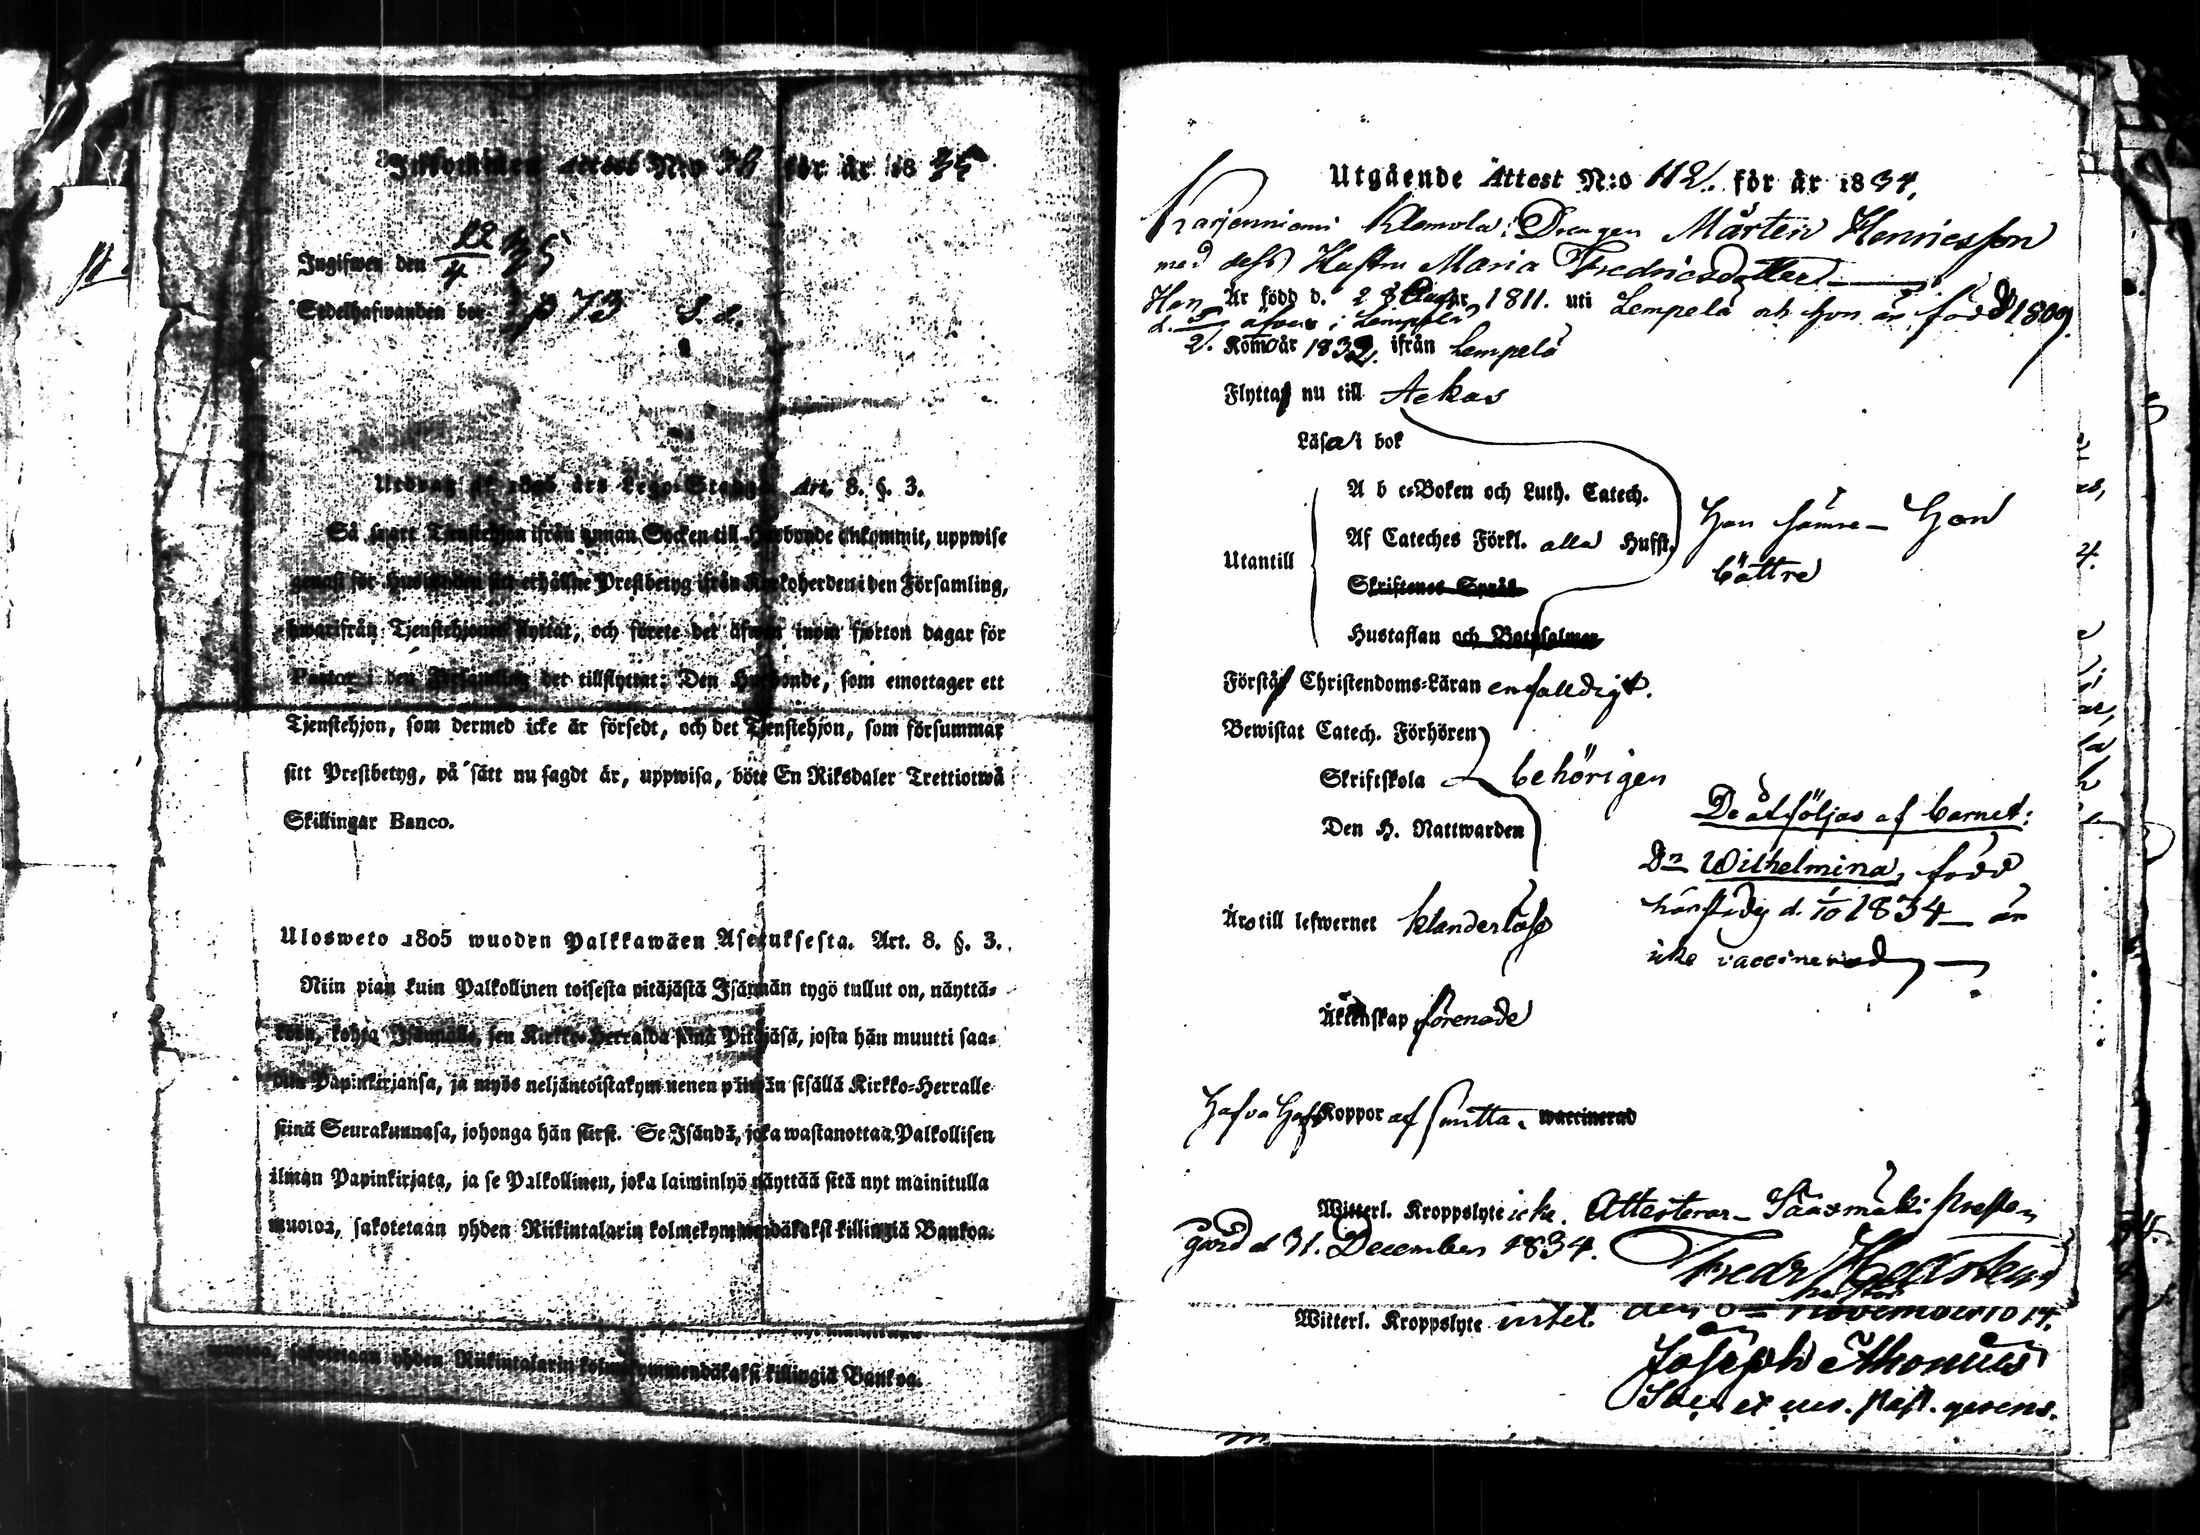 Inkommen Attest N:o 38 för år 1835
Ingifwen den 22/4 35
Sedelhafwanden bor p 73 S. d.
Utdrag af 1805 års Lego-Stadga Art. 8. §. 3.
Så snart Tjenstehjon ifrån annan Socken till Husbonde ankommit, uppwise
genast för Husbonden sitt erhållne Prestbetyg ifrån Kyrkoherden i den Församling,
hwarifrån Tjenstehjonet flyttat, och förete det äfwen inom fjorton dagar för
Pastor i den Församling det tillflyttat: Den Husbonde, som emottager ett
Tjenstehjon, som dermed icke är försedt, och det Tjenstehjon, som försummar
sitt Prestbetyg, på sätt nu sagdt är, uppwisa, böte En Riksdaler Trettiotwå
Skillingar Banco.
Ulosweto 1805 wuoden Palkkawäen Asetuksesta. Art. 8. §. 3.
Niin pian kuin Palkollinen toisesta pitäjästä Isännän tygö tullut on, näyttä-
köön, kohta Isännälle, sen Kirkko-Herralda siinä Pitäjäsä, josta hän muutti saa-
dun Papinkirjansa, ja myös neljäntoistakymmenen päiwän sisällä Kirkko-Herralle
siinä Seurakunnasa, johonga hän siirsi. Se Isändä, joka wastanottaa Palkollisen
ilman Papinkirjata, ja se Palkollinen, joka laiminlyö näyttää sitä nyt mainitulla
muotoa, sakotetaan yhden Riikintalarin kolmekymmendäkaksi killingiä Bankoa.
muotoa, sakotetaan yhden Riikintalarin kolmekymmendäkaksi killingiä Bankoa.
Utgående Attest N:o 112. för år 1834.
Karjenniemi Klemola: Drengen Mårten Henricsson
med dess Hustru Maria Fredricsdotter
Han Är född d. 28 1811. uti Lempelä och hon är född 1809
d. 5/2. äfven i Lempelä
Kom år 1832. ifrån Lempelä
Flyttar nu till Ackas
Läsa i bok
A b c-Boken och Luth. Catech.
Han sämre – Hon
Utantill
Af Cateches Förkl. alla Hufst.
bättre
Skriftenes Språk
Hustaflan och Botpsalmer
Förstå Christendoms-Läran enfalldigt.
Bewistat Catech. Förhören
Skriftskola behörigen
Den H. Nattwarden
De åtföljas af barnet:
Dn Wilhelmina, född
härstädes d. 1/10 1834 – är
icke vaccinerad
Äro till lefwernet klanderlöse
Äktenskap förenade
Hafva haft Koppor af smitta. waccinerad
Witterl. Kroppslyte icke. Attesterar – Sääxmäki Preste
gård d 31. December 1834.
Fredr
Witterl. Kroppslyte intet. den november
Joseph